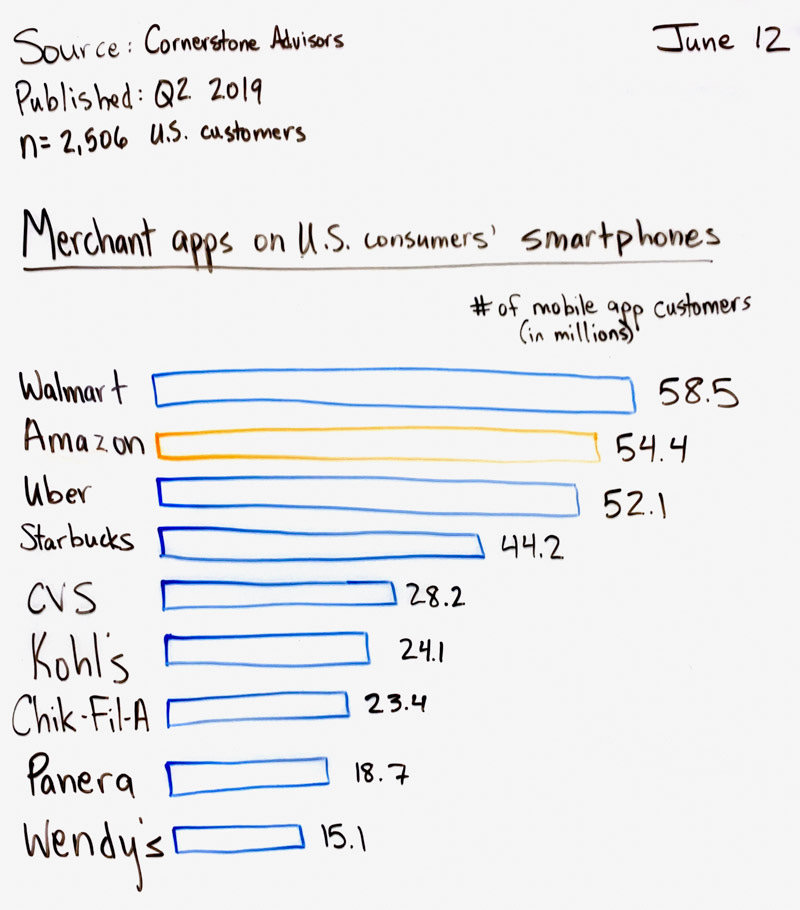 Source: Cornerstone Advisors
June 12
Published: Q2 2019
n=2,506 U.S. customers
Merchant apps on U.S. consumers' smartphones
# of mobile app customers
(in millions)
Walmart 58.5
Amazon 54.4
Uber 52.1
Starbucks 44.2
CVS 28.2
Kohl's 24.1
Chik-Fil-A 23.4
Panera 18.7
Wendy's 15.1